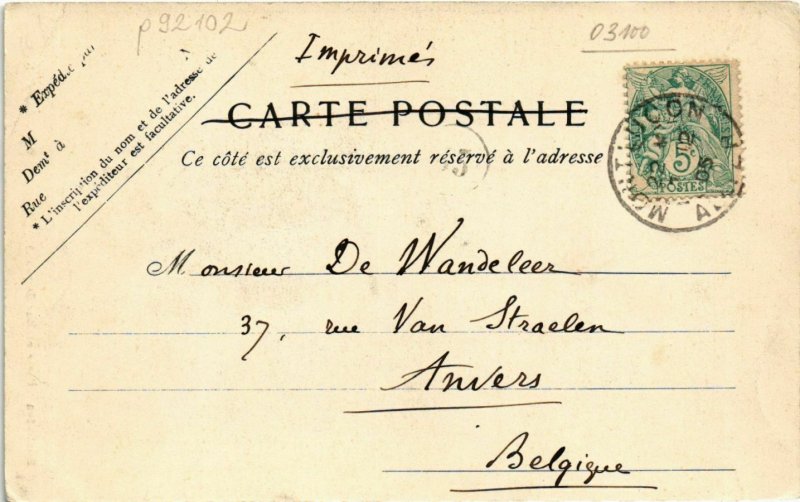 p92102
03100
Imprimés
CARTE POSTALE
Ce côté est exclusivement réservé à l'adresse
* Expéd.
M
Demt à
Rue
* L'inscription du nom et de l'adresse de
l'expéditeur est facultative.
MONTLUÇON
5
POSTES
Monsieur De Wandeleer
37, rue Van Straelen
Anvers
Belgique